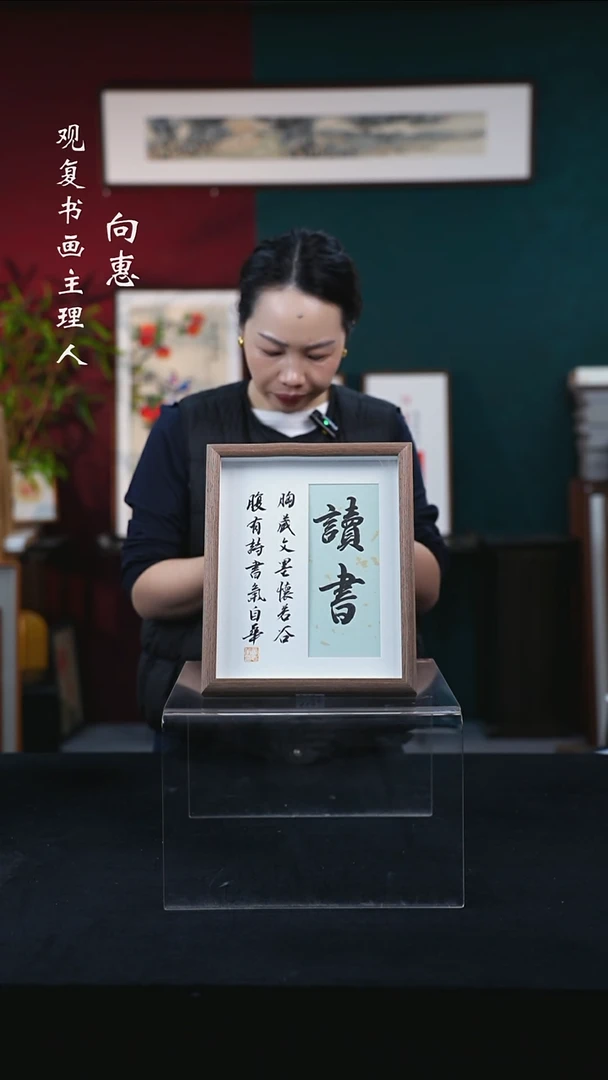 向惠
观复书画主理人
讀書
胸藏文墨懷若谷
腹有詩書氣自華